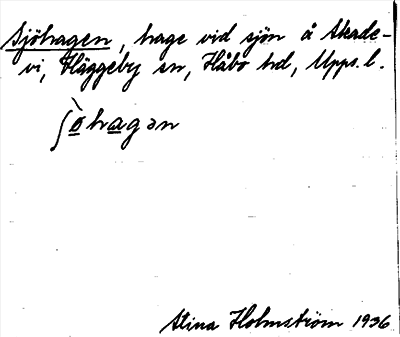 Sjöhagen, hage vid sjön å Skade-
vi, Häggeby sn, Håbo hd, Upps.l.
ʃö̀hagən
Stina Holmström 1936